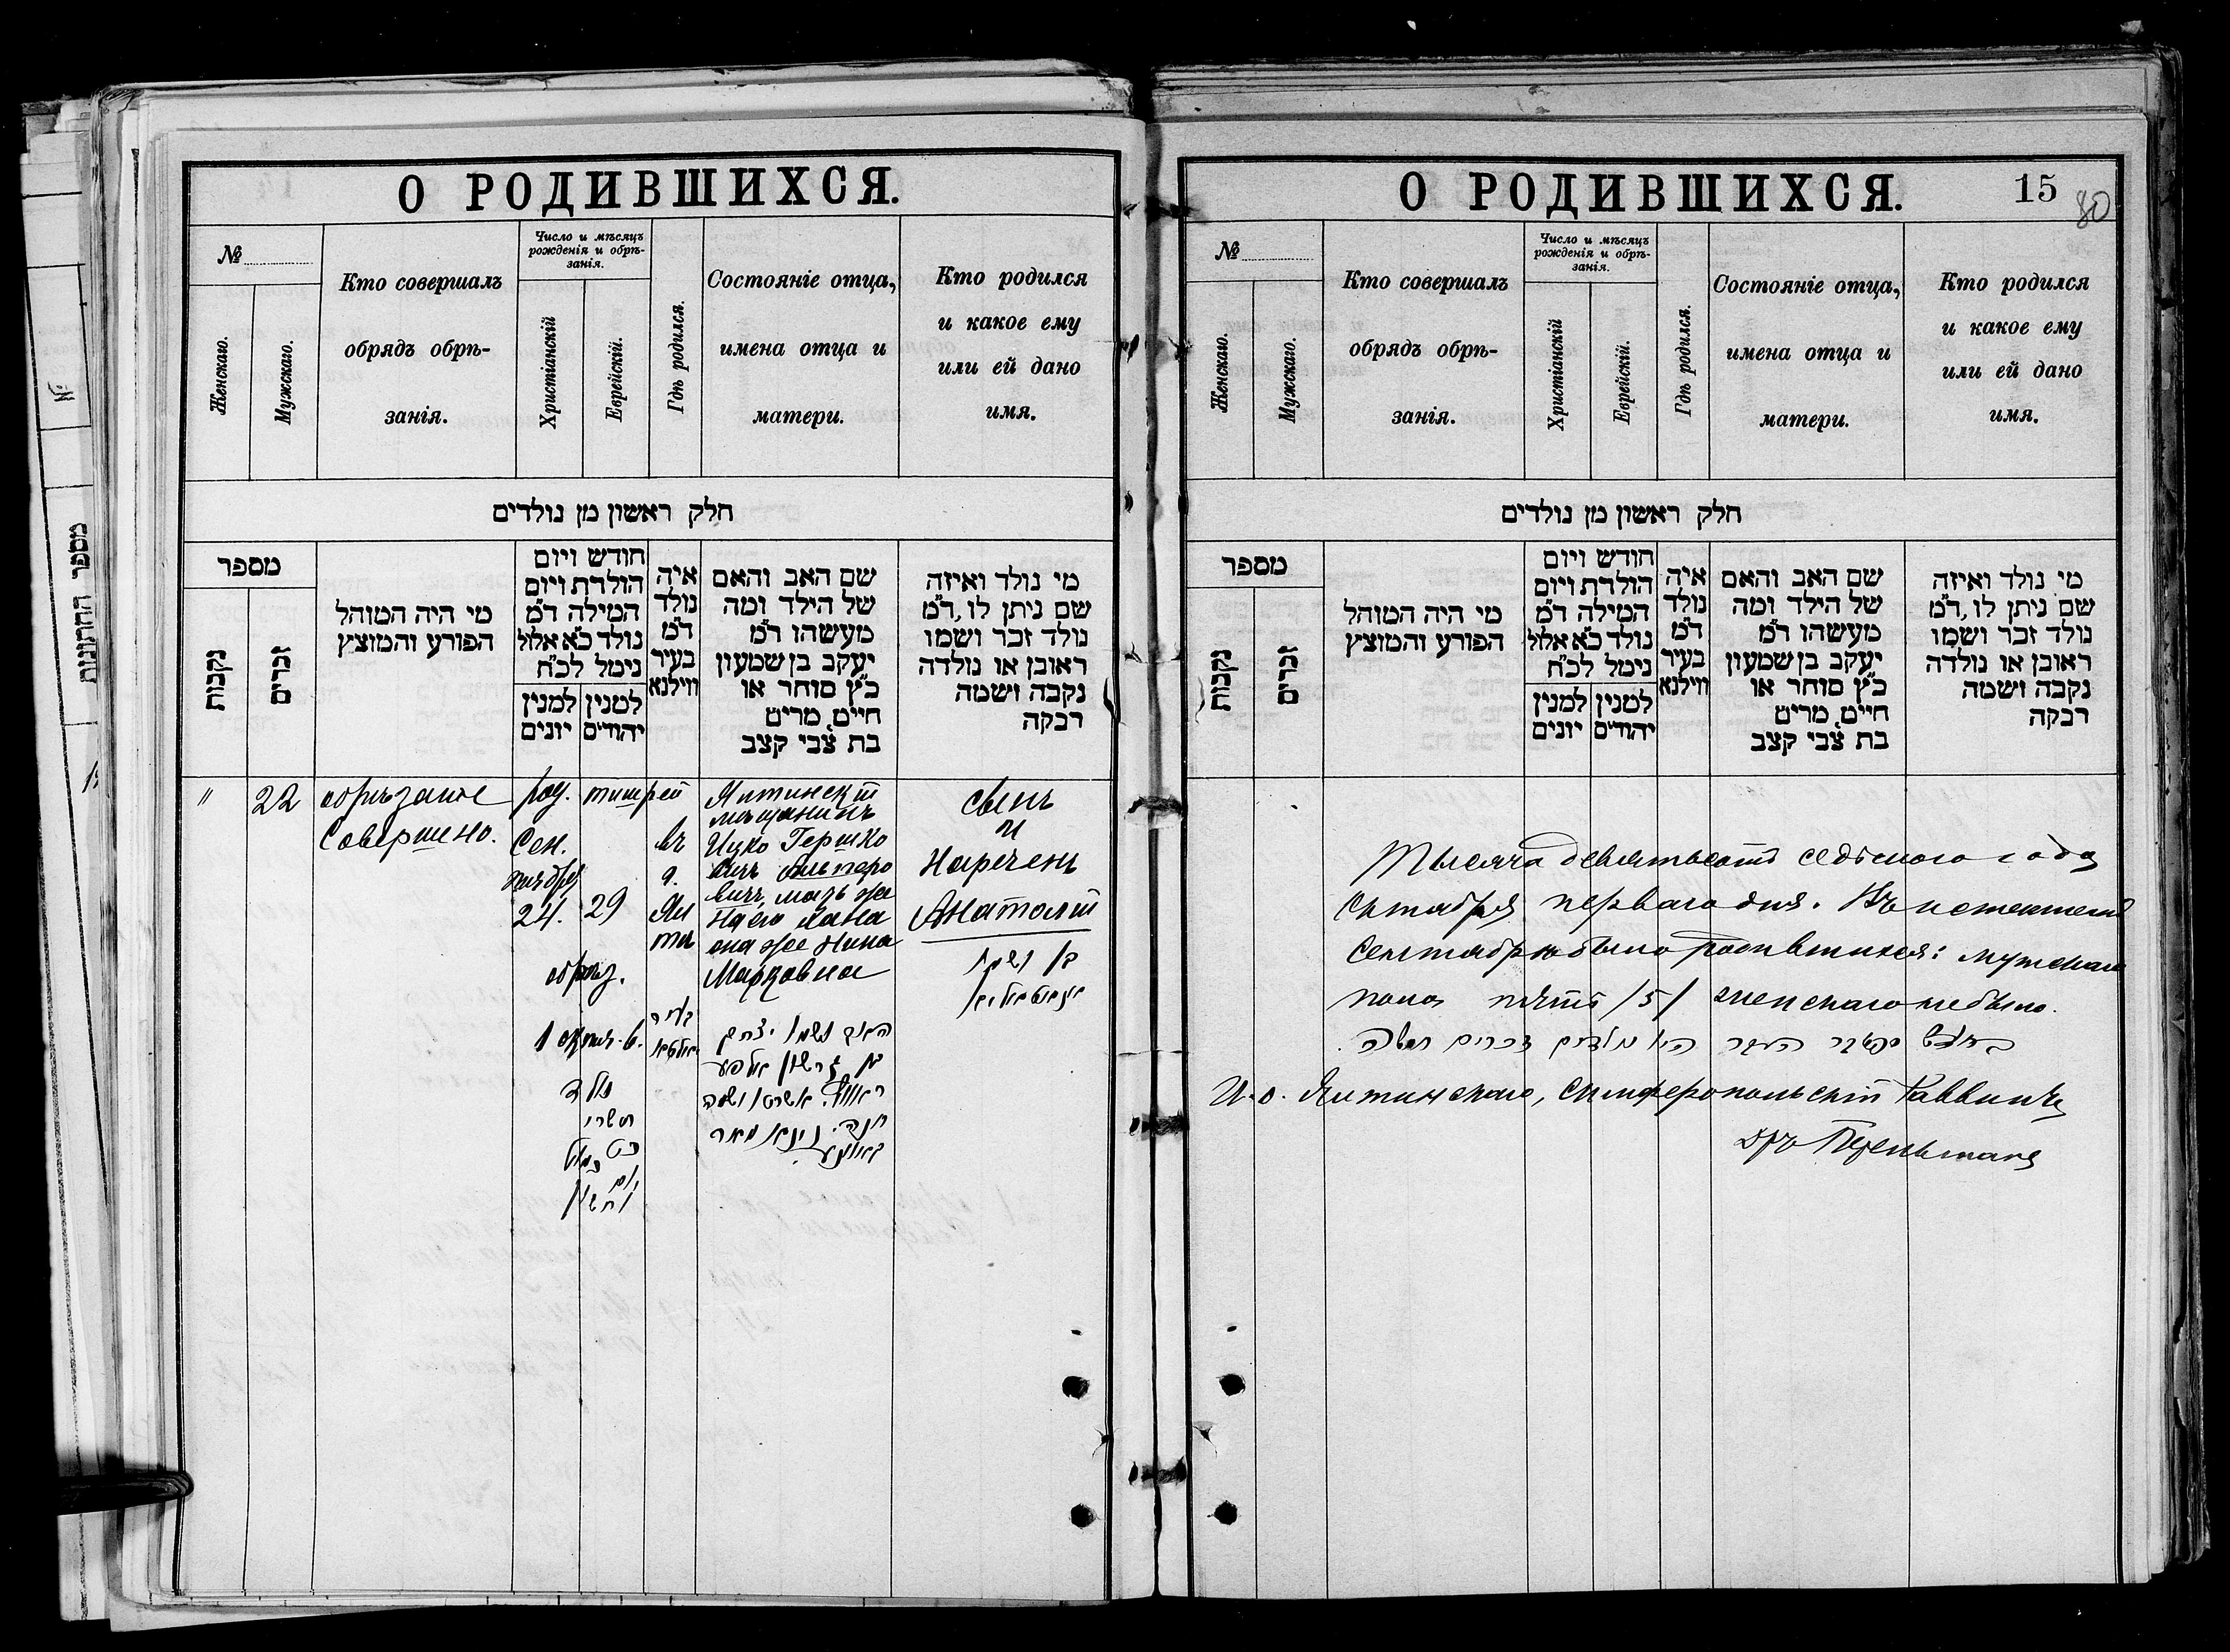 О РОДИВШИХСЯ.
№
Женскаго.
Мужскаго.
Кто совершалъ
обрядъ обрѣ-
занія.
Число и мѣсяцъ
рожденія и обрѣ-
занія.
Христіанскій
Еврейскій.
Гдѣ родился.
Состояніе отца,
имена отца и
матери.
Кто родился
и какое ему
или ей дано
имя.
חלק ראשון מן נולדים
מספר
נקבות
זכרים
מי היה המוהל
הפורע והמוצץ
חודש ויום
הולדת ויום
המילה ד״מ
נולד כ״א אלול
נימל לכ״ח
למנין יהודים
למנין יונים
איה
נולד
ד״מ
בעיר
ווילנא
שם האב והאם
של הילד ומה
מעשהו ד״מ
יעקב בן שמעון
כ״ץ סוחר או
חייט, מרים
בת צבי קצב
מי נולד ואיזה
שם ניתן לו, ד״מ
נולד זכר ושמו
ראובן או נולדה
נקבה ושמה
רבקה
" 22
обрѣзаніе
Совершено.
род. тишрей
Сен.
тября
24. 29
обрѣз.
1 октяб.
נולד
תשרי
כט
въ
г.
Ял
тѣ
בעיר
Ялтинскій
мѣщанинъ
Ицко Гершко
вичъ
вичъ, мать же
Хана
она же Нина
Марковна
יצחק
בן
ושמה
חנה
сынъ
и
Нареченъ
Анатолій
בן ושמו
О РОДИВШИХСЯ.
15
80
№
Женскаго.
Мужскаго.
Кто совершалъ
обрядъ обрѣ-
занія.
Число и мѣсяцъ
рожденія и обрѣ-
занія.
Христіанскій
Еврейскій.
Гдѣ родился.
Состояніе отца,
имена отца и
матери.
Кто родился
и какое ему
или ей дано
имя.
חלק ראשון מן נולדים
מספר
נקבות
זכרים
מי היה המוהל
הפורע והמוצץ
חודש ויום
הולדת ויום
המילה ד״מ
נולד כ״א אלול
נימל לכ״ח
למנין יהודים
למנין יונים
איה
נולד
ד״מ
בעיר
ווילנא
שם האב והאם
של הילד ומה
מעשהו ד״מ
יעקב בן שמעון
כ״ץ סוחר או
חייט, מרים
בת צבי קצב
מי נולד ואיזה
שם ניתן לו, ד״מ
נולד זכר ושמו
ראובן או נולדה
נקבה ושמה
רבקה
Тысяча девятьсотъ седьмого года
Октября перваго дня. Въ истекшемъ
Сентябрѣ было родившихся: мужскаго
пола пять /5/ женскаго не было.
בחדש העבר היו נולדים זכרים חמשה.
И. о. Ялтинскаго, Симферопольскій Раввинъ
Дръ